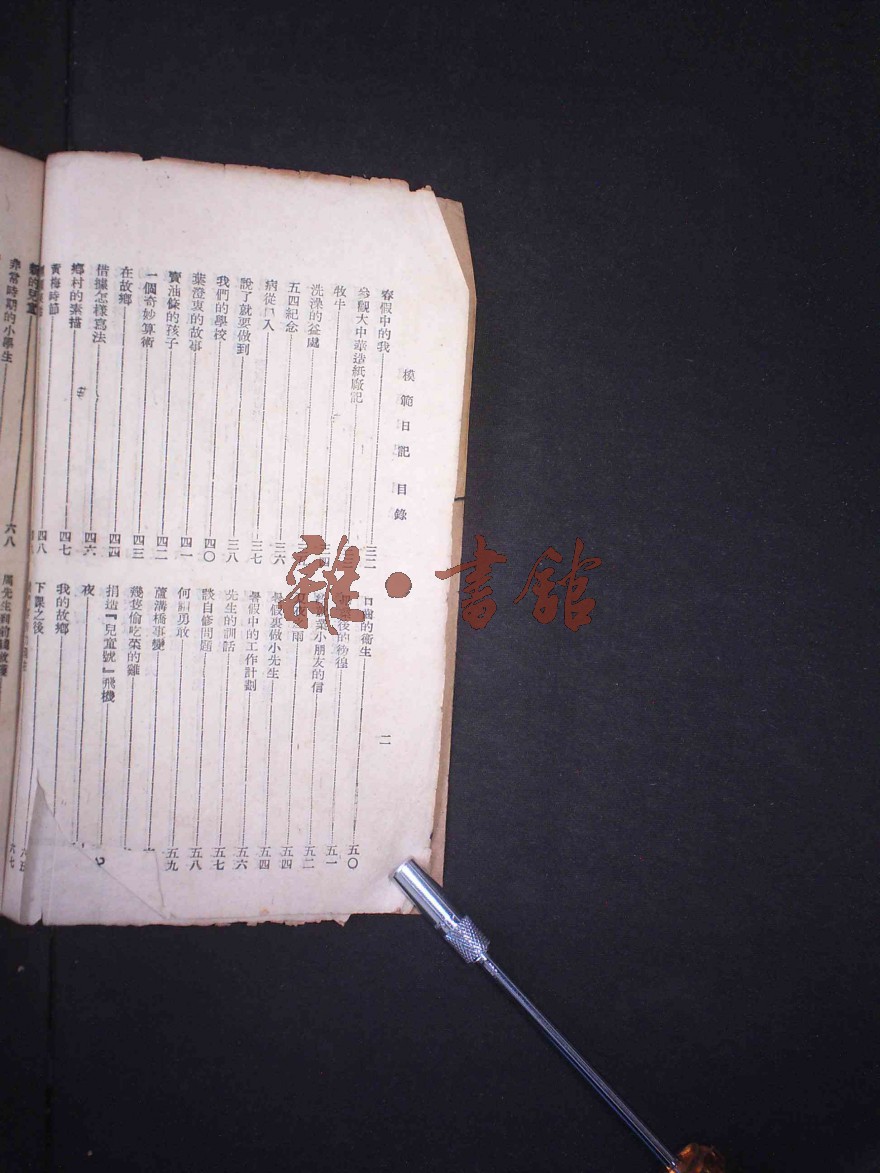 模範日記 目錄
二
春假中的我 三二
參觀大中華造紙廠記
牧牛
洗澡的益處
五四紀念
病從口入 三六
說了就要做到 三七
我們的學校 三八
葉澄衷的故事 四〇
賣油條的孩子 四一
一個奇妙算術 四二
在故鄉 四三
借據怎樣寫法 四四
鄉村的素描 四六
黃梅時節 四七
四八
口齒的衞生 五〇
後的徬徨 五一
小朋友的信 五二
雨 五四
暑假裏做小先生 五四
暑假中的工作計劃 五六
先生的訓話 五七
談自修問題 五八
何謂勇敢 五九
蘆溝橋事變
幾隻偷吃菜的雞
捐造『兒童號』飛機
夜
我的故鄉
下課之後
的兒童
非常時期的小學生 六八
六七
雜·書館